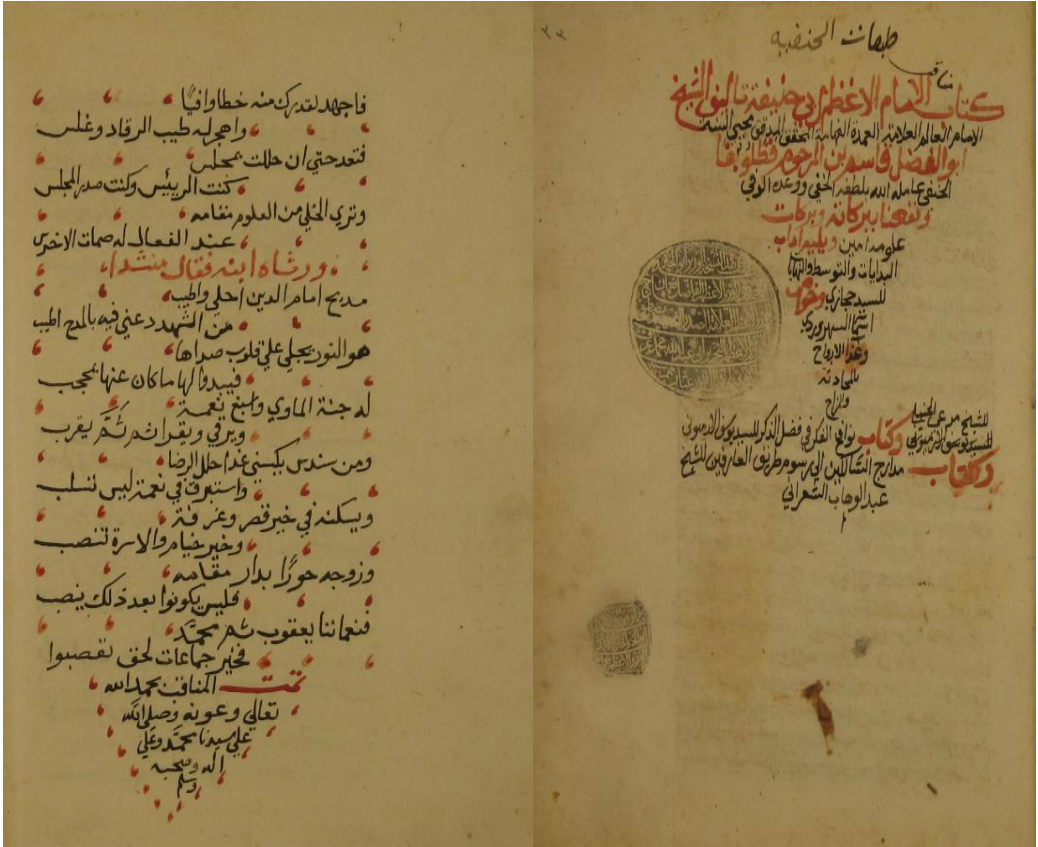 طبقات الحنفيه
٣٣
مناقب
كتاب الامام الاعظم ابي حنيفة تاليف الشيخ
الامام العالم العلامة العمدة الفهامة المحقق المدقق محيي السنة
ابو الفضل قاسم بن المرحوم قطلوبغا
الحنفي عامله الله بلطفه الخفي ووعده الوفي
ونفعنا ببركاته وبركات
علومه امين ويليه اداب
البدايات والتوسط والنهايات
للسيد حجازي وخواص
اسما السهروردي
وغذا الارواح
بالمحادثة
والمزاح
للشيخ مرعي الحنبلي
وكتاب نوافح الفكر في فضل الذكر للسيد يوسف الارميوني
وكتاب مدارج السالكين الي رسوم طريق العارفين للشيخ
عبد الوهاب الشعراني
فاجهد لتدرك منه خطا وافيًا
واهجر له طيب الرقاد وغلس
فتعد حتي ان حللت بمجلس
كنت الرييس وكنت صدر المجلس
وتري الخلي من العلوم مقامه
عند الفعال له صمات الاخرس
ورثاه ابنه فقال منشدا
مديح امام الدين احلي واطيب
من الشهد دعني فيه بالمدح اطيب
هو النور يجلي علي قلوب صداها
فيبدوا لها ما كان عنها بمحجب
له جنة الماوي واسبغ نعمة
ويرقي ويقرا ثم ثَمَّ يقرب
ومن سندس يكسي غدا حلل الرضا
واستبرق في نعمة ليس تسلب
ويسكنه في خير قصر وغرفة
وخير خيام والاسرة تنصب
وزوجه حورًا بدار مقامه
فليس يكونوا بعد ذلك ينصب
فنعماننا يعقوب ثم محمَّد
فخير جماعات لحق تعصبوا
تمت المناقب بحمد الله
تعالي وعونه وصلي الله
علي سيدنا محمَّد وعلي
اله وصحبه
وسلم